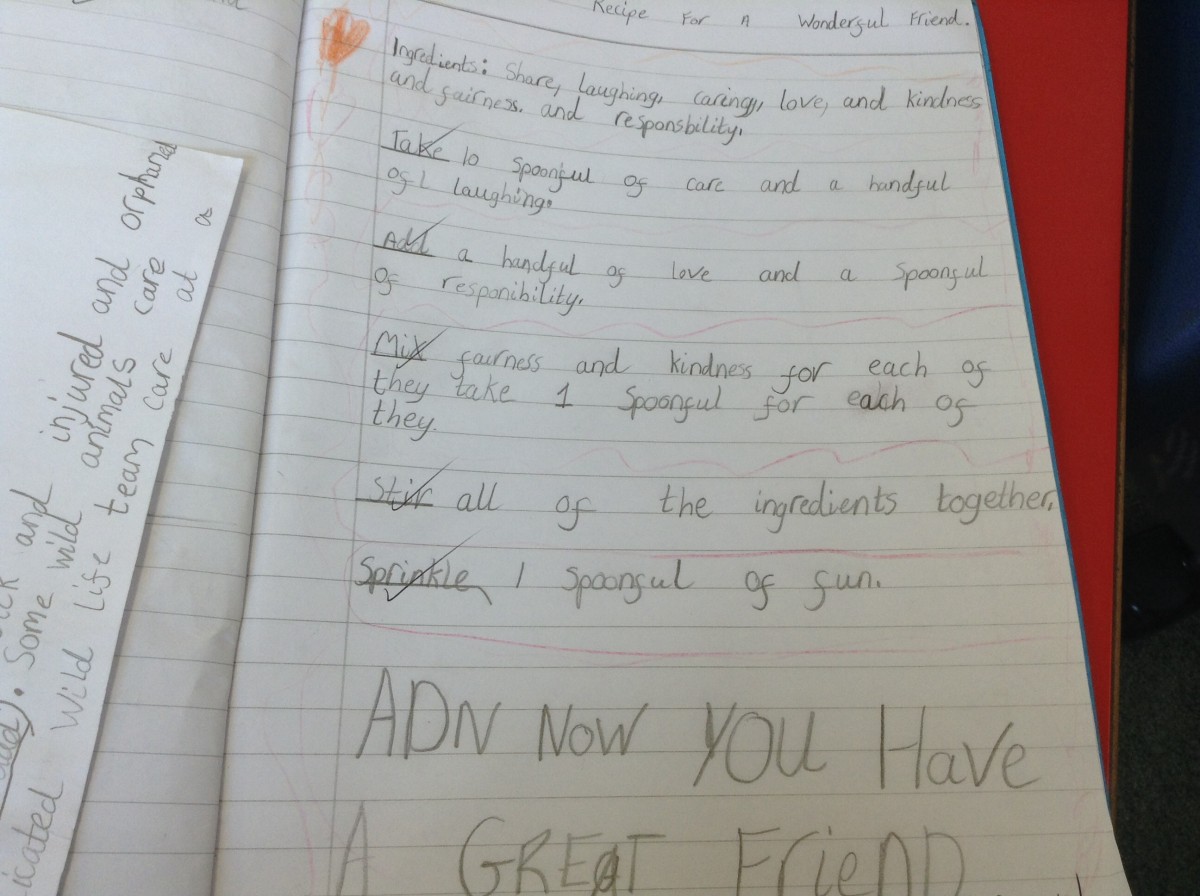 Recipe For A Wonderful Friend.
Ingredients: Share, laughing, caring, love, and kindness
and fairness. and responsbility.
Take 10 spoonful of care and a handful
of laughing.
Add a handful of love and a spoonful
of responibility.
Mix fairness and kindness for each of
they take 1 spoonful for each of
they.
Stir all of the ingredients together.
Sprinkle 1 spoonful of fun.
ADN NOW YOU Have
A GREAT Friend
injured and orphaned
and wild animals care at a
Some
Wild Life team care
icated